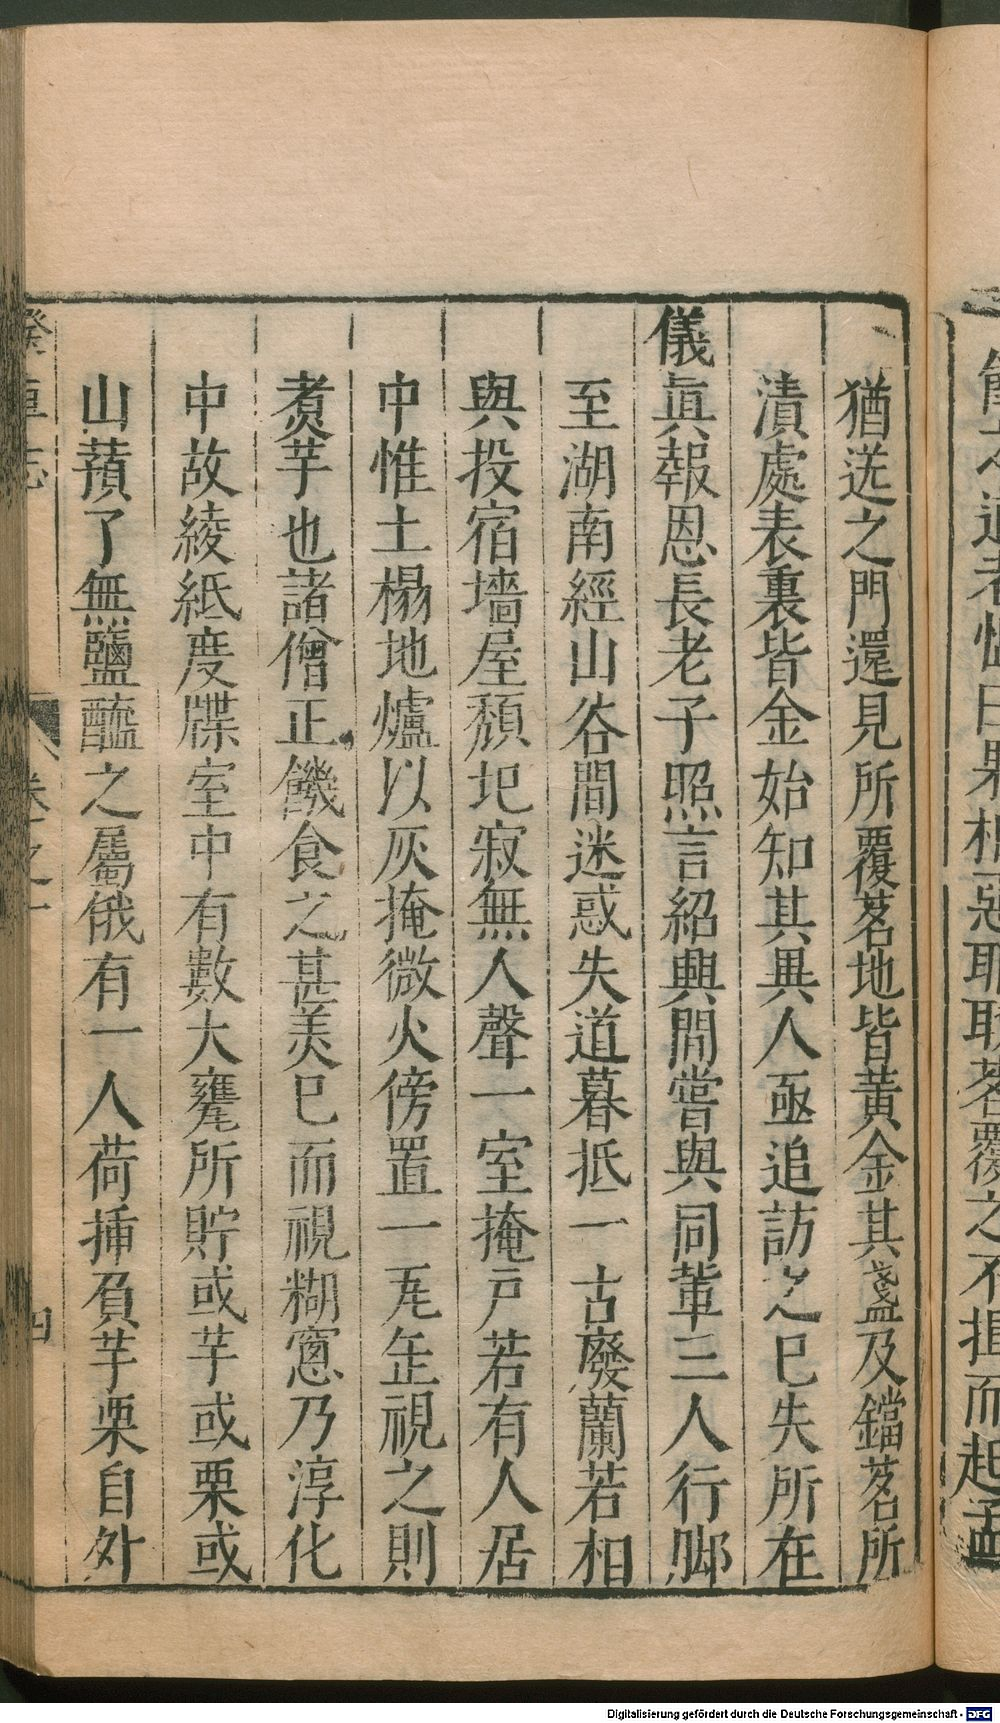 猶送之門還見所覆茗地皆黃金其盞及鐺茗所
漬處表裏皆金始知其異人亟追訪之巳失所在
儀眞報恩長老子照言紹興間嘗與同輩三人行脚
至湖南經山谷間迷惑失道暮抵一古廢蘭若相
與投宿墻屋頹圯寂無人聲一室掩戶若有人居
中惟土榻地爐以灰掩微火傍置一瓦缶視之則
煑芋也諸僧正饑食之甚美巳而視糊窓乃淳化
中故綾紙度牒室中有數大甕所貯或芋或栗或
山蕷了無鹽醯之屬俄有一人荷揷負芋栗自外
睽車志
卷之一
四
Digitalisierung gefördert durch die Deutsche Forschungsgemeinschaft - DFG